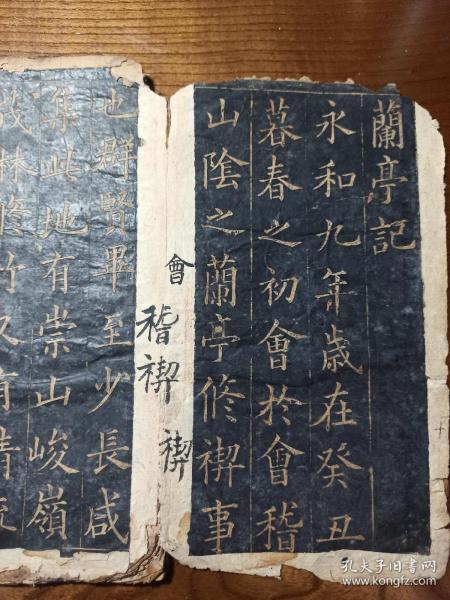 蘭亭記
永和九年歲在癸丑
暮春之初會於會稽
山陰之蘭亭俻禊事
會
稽禊
禊
也群賢畢至少長咸
集此地有崇山峻嶺
茂林脩竹又有清流
孔夫子旧书网
www.kongfz.com